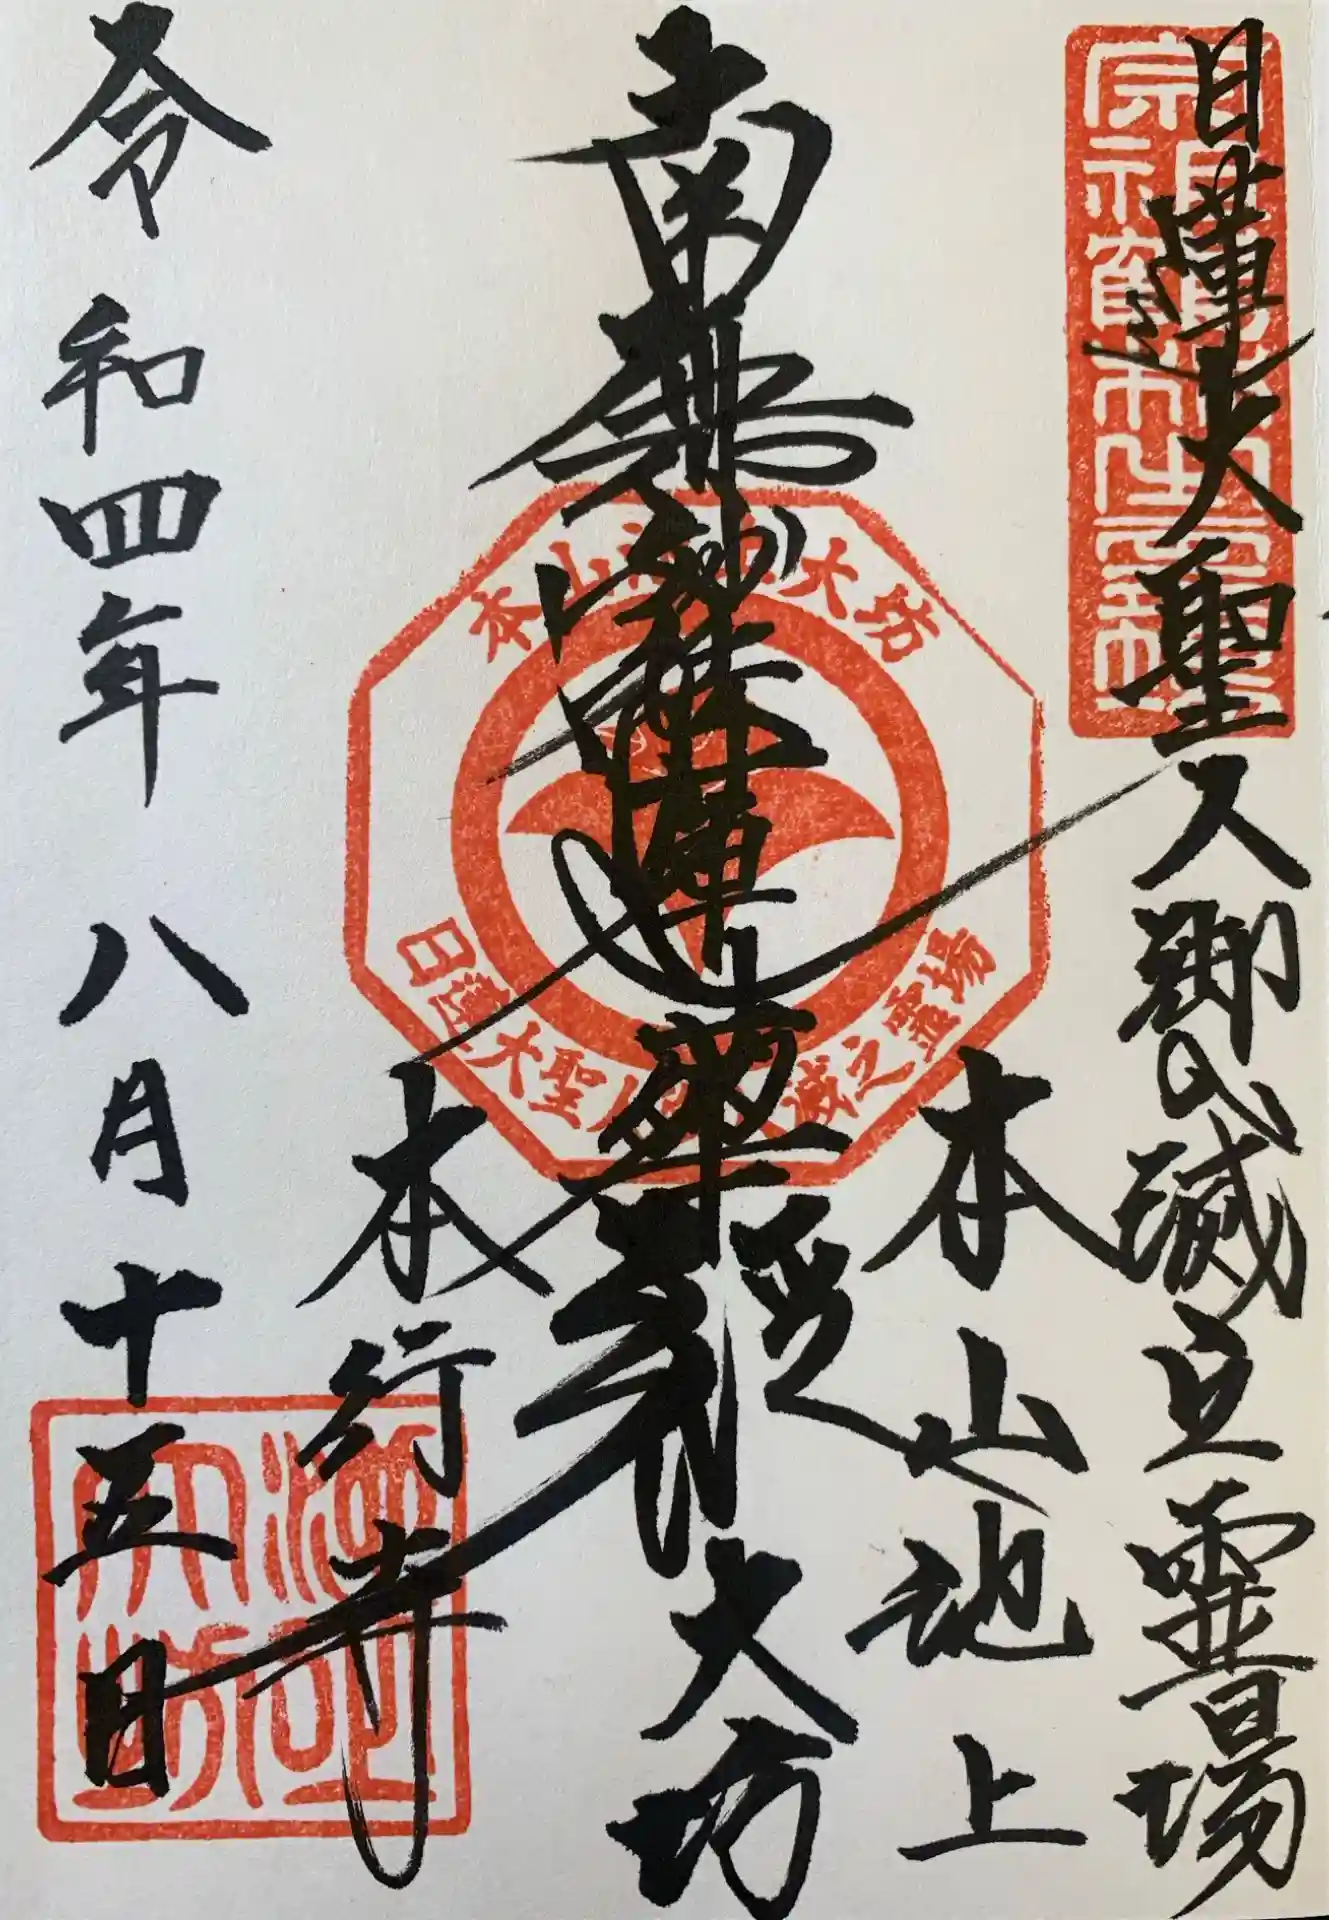 日蓮大聖人御入滅之霊場
本山池上
南無妙法蓮華経
大坊
本行寺
令和四年八月十五日
本山池上大坊
日蓮大聖人御入滅之霊場
池上
大坊